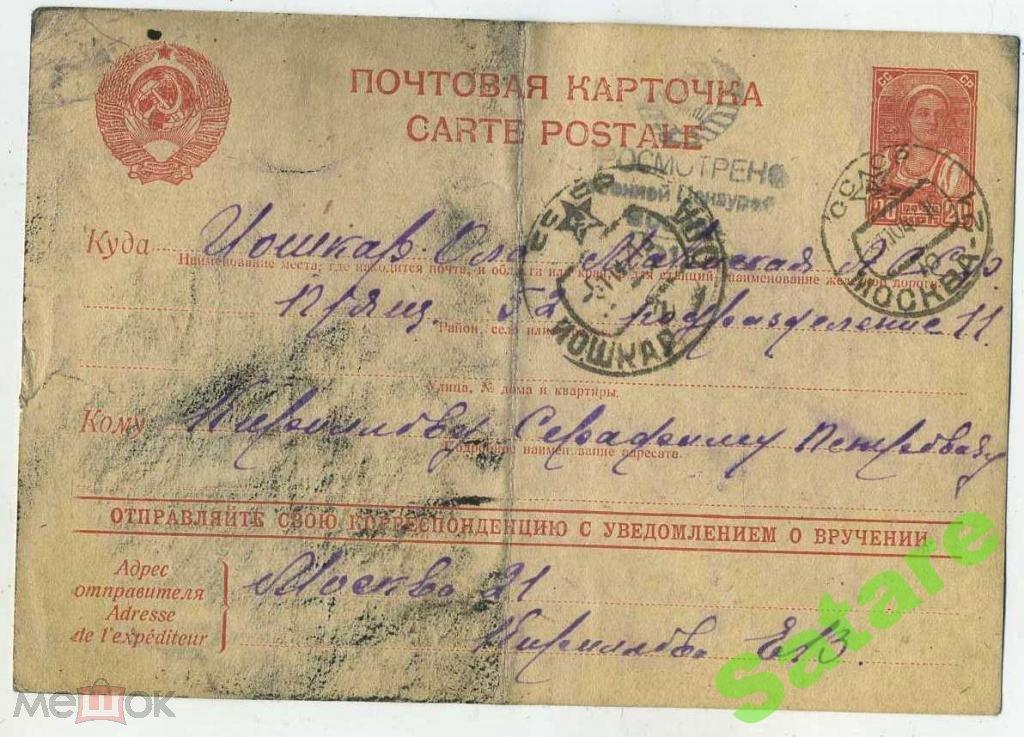 ПОЧТОВАЯ КАРТОЧКА
CARTE POSTALE
СС СР
20 20
ПРОСМОТРЕНО
Военной Цензурой
СССР
МОСКВА-21
СССР
ЙОШКАР ОЛА
Куда Иошкар Ола
Наименование места, где находится почта, и области или края, для станций, наименование железной дороги.
п/ящ. 52 подразделение 11.
Район, село или
Улица, № дома и квартиры.
Кому Кириллову Серафиму Петровичу
Подробное наименование адресата.
ОТПРАВЛЯЙТЕ СВОЮ КОРРЕСПОНДЕНЦИЮ С УВЕДОМЛЕНИЕМ О ВРУЧЕНИИ
Адрес отправителя
Adresse de l'expéditeur
Москва 21
Кириллова Е.В.
Satare
МЕШОК